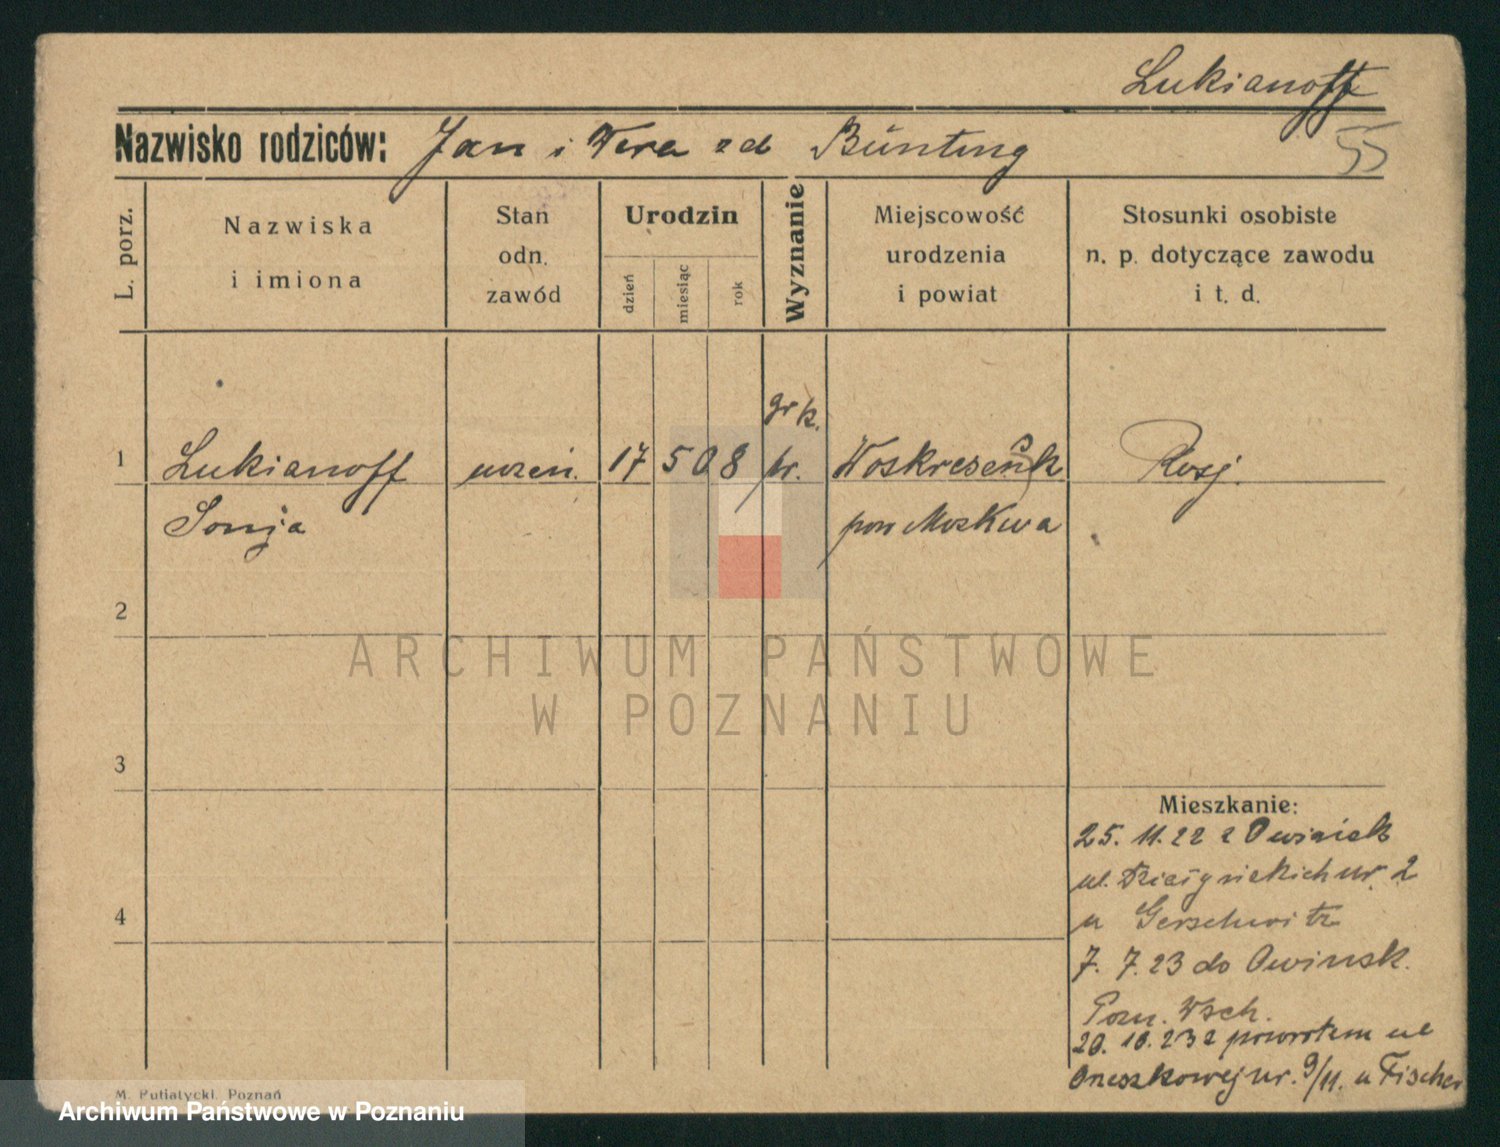 Lukianoff
Nazwisko rodziców: Jan i Wera zd Bünting
55
L. porz.
Nazwiska
i imiona
Stan
odn.
zawód
Urodzin
dzień
miesiąc
rok
Wyznanie
Miejscowość
urodzenia
i powiat
Stosunki osobiste
n. p. dotyczące zawodu
i t. d.
gr k.
1 Lukianoff uczeń. 17 5 08 pr. Woskresensk Rosj.
Sonja pow Moskwa
2
ARCHIWUM PAŃSTWOWE
W POZNANIU
3
Mieszkanie:
25. 11. 22 z Owinisk
ul. Działyńskich nr. 2
4
u Gerschwitz
7. 7. 23 do Owinsk.
Pozn. Wsch.
20. 10. 23 z powrotem ul
nr. 9/11. u Fischer
M. Putiatycki, Poznań
Archiwum Państwowe w Poznaniu